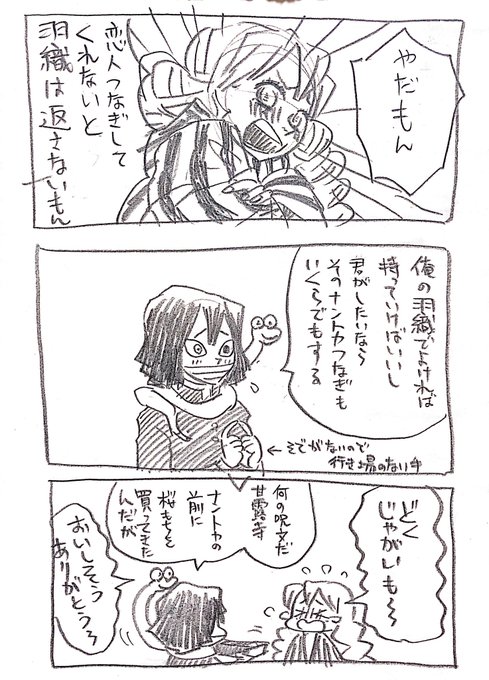 やだもん
恋人つなぎして
くれないと
羽織は返さないもん
俺の羽織でよければ
持っていけばいいし
君がしたいなら
そのナントカつなぎも
いくらでもする
←そでがないので
行き場のない手
どく
じゃがいも〜〜
何の呪文だ
甘露寺
ナントカの
前に
桜もちを
買ってきた
んだが
おいしそう
ありがとう〜